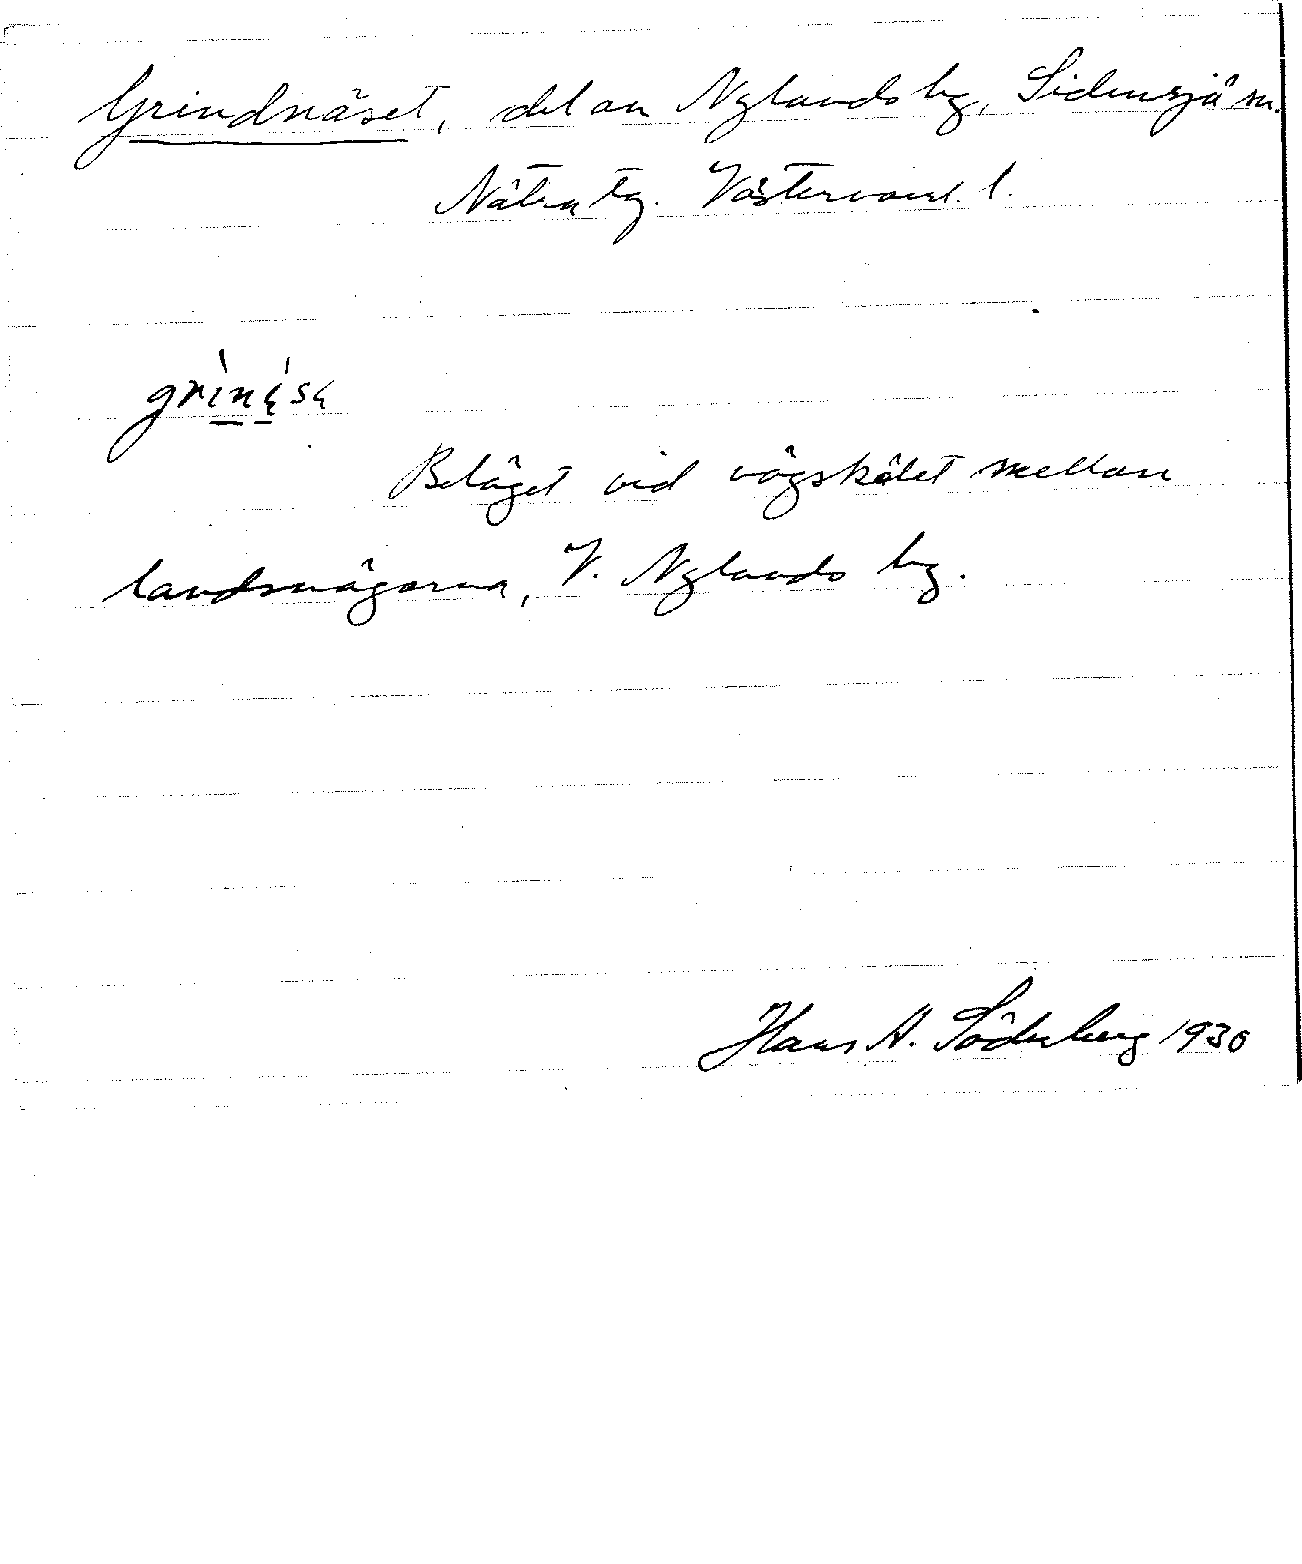 Grindnäset, del av Nylands by, Sidensjö sn.
Nätra tg. Västernorrl. l.
grinäsä
Beläget vid vägskälet mellan
landsvägarna, V. Nylands by.
Hans A. Söderberg 1930